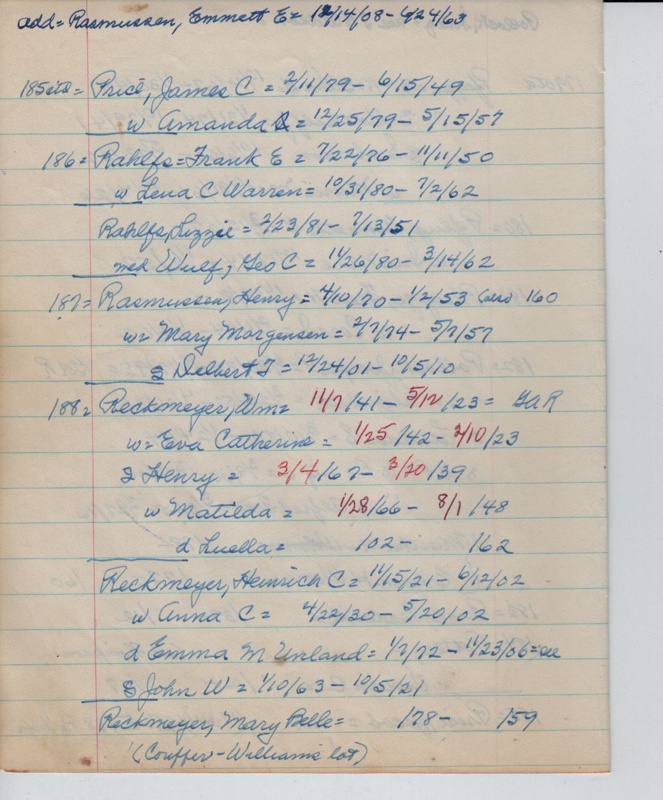 add = Rasmussen, Emmett E = 12/14/08 - 4/24/63
185 = Price, James C = 2/11/79 - 6/15/49
w Amanda = 12/25/79 - 5/15/57
186 = Rahlfs = Frank E = 7/22/76 - 11/11/50
w Lena C Warren = 10/31/80 - 7/2/62
Rahlfs, Lizzie = 2/23/81 - 7/13/51
med Wulf, Geo C = 11/26/80 - 3/14/62
187 = Rasmussen, Henry = 4/10/70 - 1/2/53 160
w = Mary Morgensen = 2/7/74 - 5/7/57
s Delbert F = 12/24/01 - 10/5/10
188 = Reckmeyer, Wm = 11/7/41 - 5/12/23 = GAR
w = Eva Catherine = 1/25/42 - 2/10/23
s Henry = 3/4/67 - 3/20/39
w Matilda = 1/28/66 - 8/1/48
d Luella = /02 - /62
Reckmeyer, Heinrich C = 11/15/21 - 6/12/02
w Anna C = 4/22/30 - 5/20/02
d Emma M Unland = 1/7/72 - 11/23/06 =
s John W = 1/10/63 - 10/5/21
Reckmeyer, Mary Belle = /78 - /59
(Couffer - Williams lot)